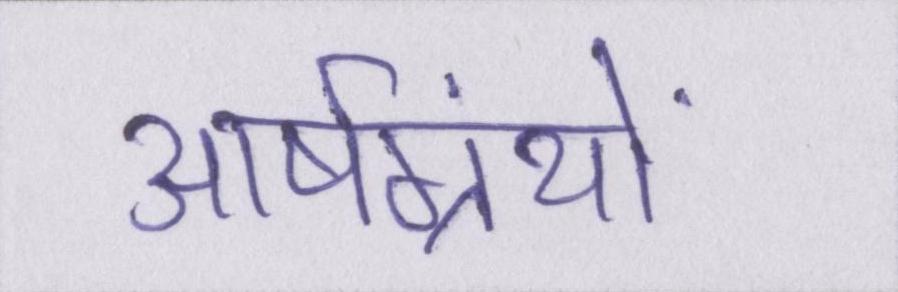 आर्षग्रंथों